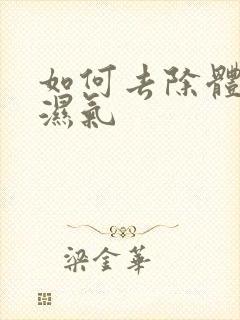 如何去除體
濕氣
梁金華